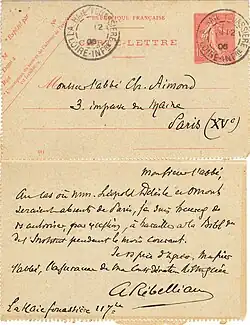 RÉPUBLIQUE FRANÇAISE
CARTE-LETTRE
LA HAIE FOUASSIÈRE
12
06
LOIRE-INFRE
Monsieur l'abbé Ch. Aimond
3. impasse du Maine
Paris (XVe)
Monsieur l'abbé,
Au cas où MM. Léopold Delisle et Omont
seraient absents de Paris, je suis heureux de
vous autoriser, par exception, à travailler à la Bibl.
de l'Institut pendant le mois courant.
Je vous prie d'agréer, Monsieur
l'abbé, l'assurance de ma considération distinguée
A Rébelliau
La Haie fouassière 11